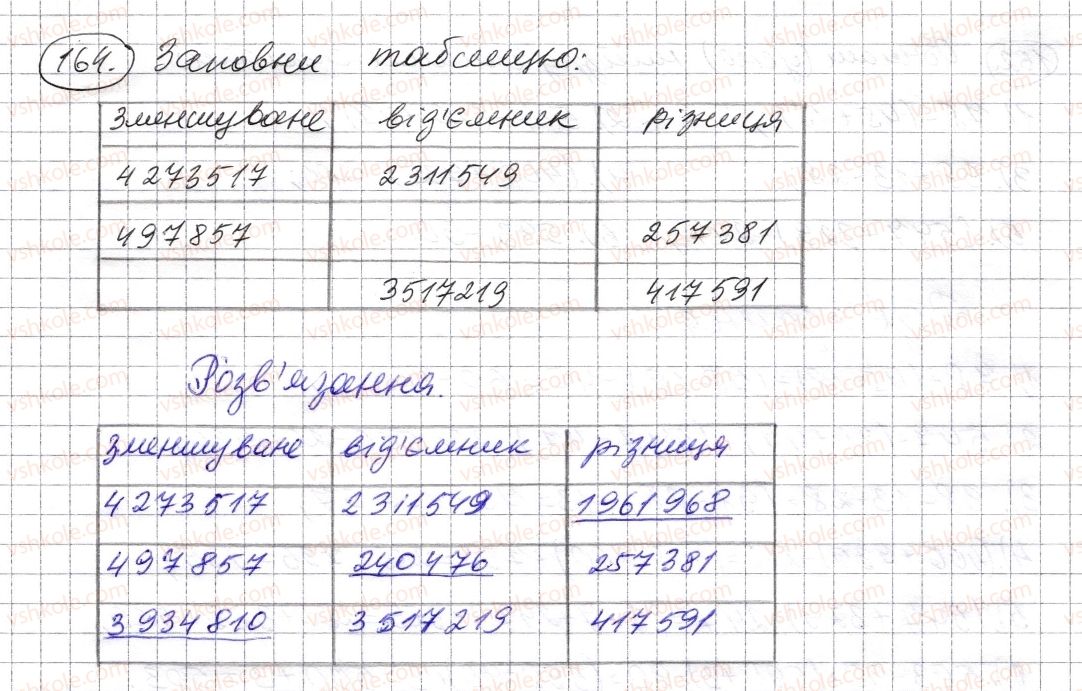 164. Заповни таблицю:
зменшуване від'ємник різниця
4273517 2311549
497857 257381
3517219 417591
Розв'язання.
зменшуване від'ємник різниця
4273517 2311549 1961968
497857 240476 257381
3934810 3517219 417591